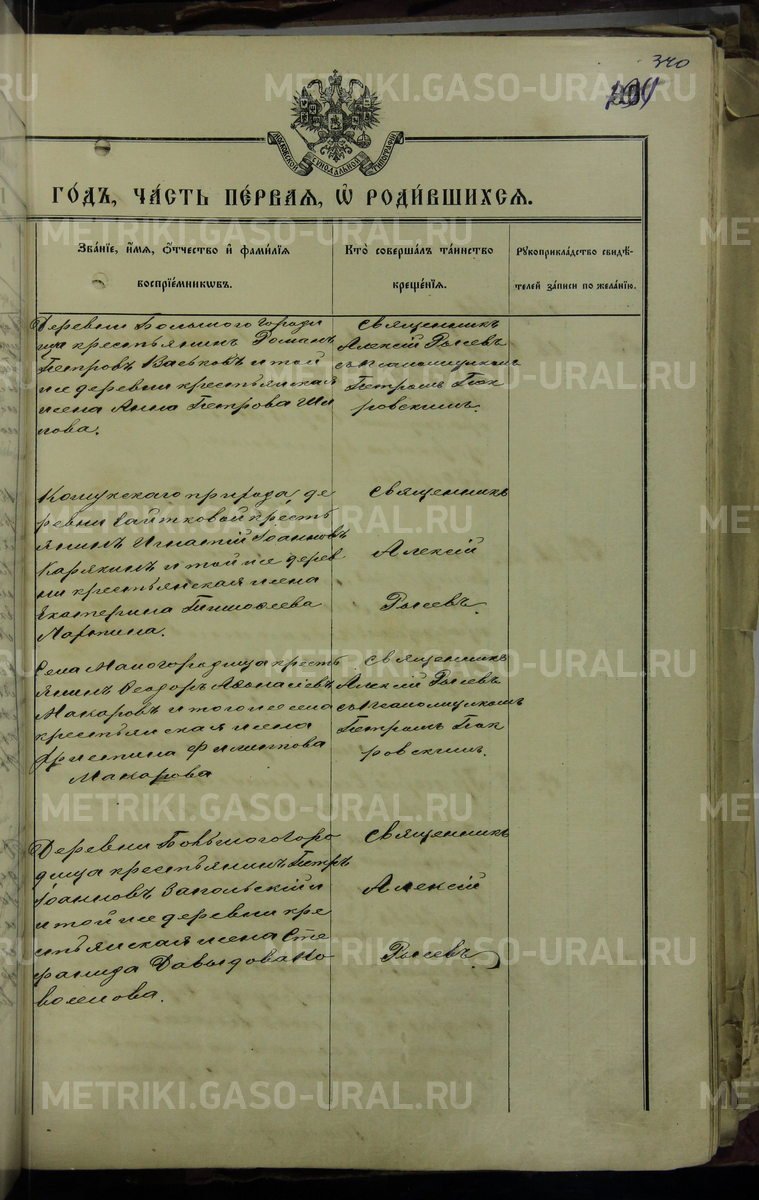 340
МОСКОВСКОЙ СѴНОДАЛЬНОЙ ТИПОГРАФІИ
ГО́ДЪ, ЧА́СТЬ ПЕ́РВАЯ, Ѽ РОДИ́ВШИХСЯ.
Зва́ніе, и́мя, о́тчество и фами́лія
воспріе́мниковъ.
Кто̀ соверша́лъ та́инство
креще́нія.
Рукоприкла́дство свидѣ́-
телей за́писи по жела́нію.
Деревни Большого Городи
ща крестьянинъ Романъ
Петровъ Васьковъ и той
же деревни крестьянская
жена Анна Петрова Ши
пова.
Священникъ
Алексій Рысевъ
съ псаломщикомъ
Петромъ Пок
ровскимъ.
Кошукскаго прихода, де
ревни крестъ
янинъ Игнатій Іоанновъ
Карякинъ и той же дерев
ни крестьянская жена
Екатерина Тимофеева
Ларькина.
Священникъ
Алексій
Рысевъ.
Села Малогородища кресть
янинъ Ѳеодоръ Аѳанасіевъ
Макаровъ и того же села
крестьянская жена
Христина Филиппова
Макарова
Священникъ
Алексій Рысевъ
съ псаломщикомъ
Петромъ Пок
ровскимъ.
Деревни Большого Горо
дища крестьянинъ Петръ
Іоанновъ Запольскій и
и той же деревни кре
стьянская жена Сте
фанида Давыдова Но
воселова.
Священникъ
Алексій
Рысевъ
METRIKI.GASO-URAL.RU